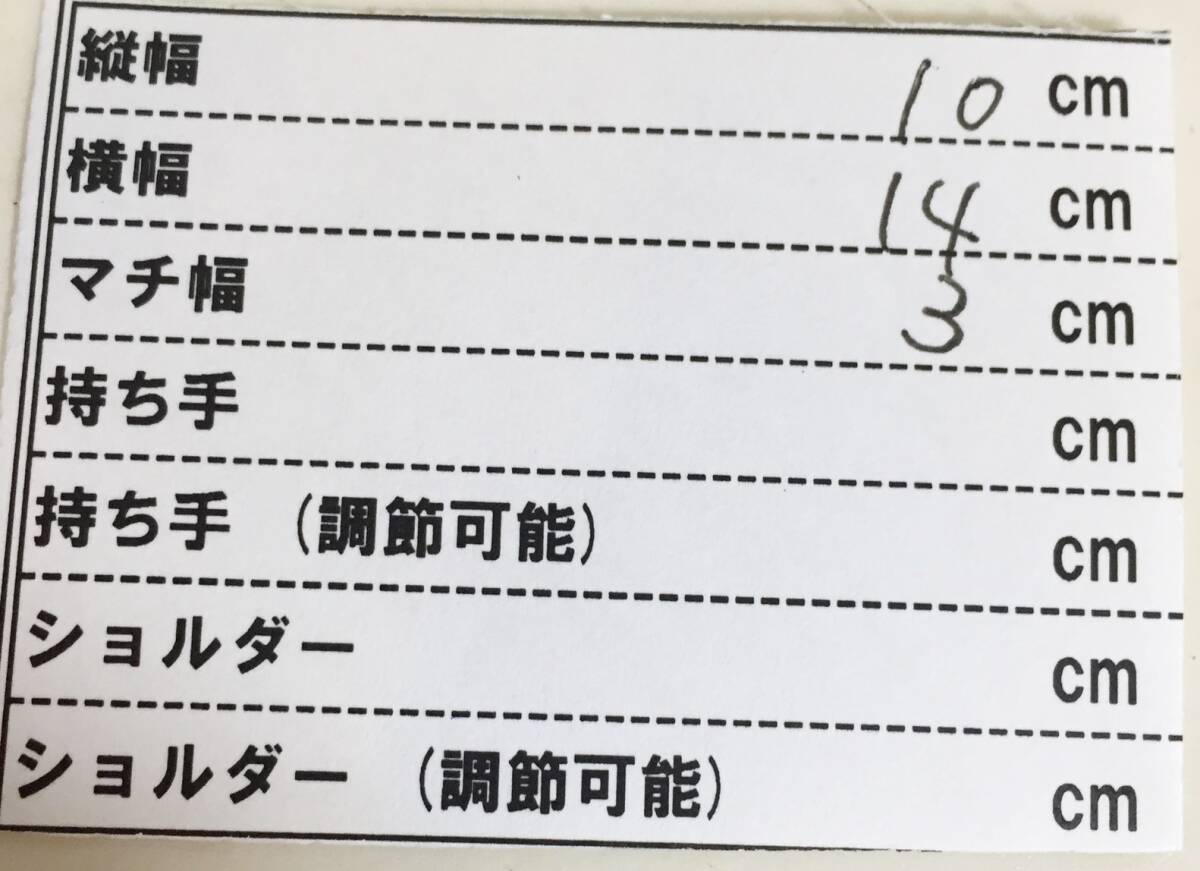 縦幅 10 cm
横幅 14 cm
マチ幅 3 cm
持ち手 cm
持ち手 (調節可能) cm
ショルダー cm
ショルダー (調節可能) cm